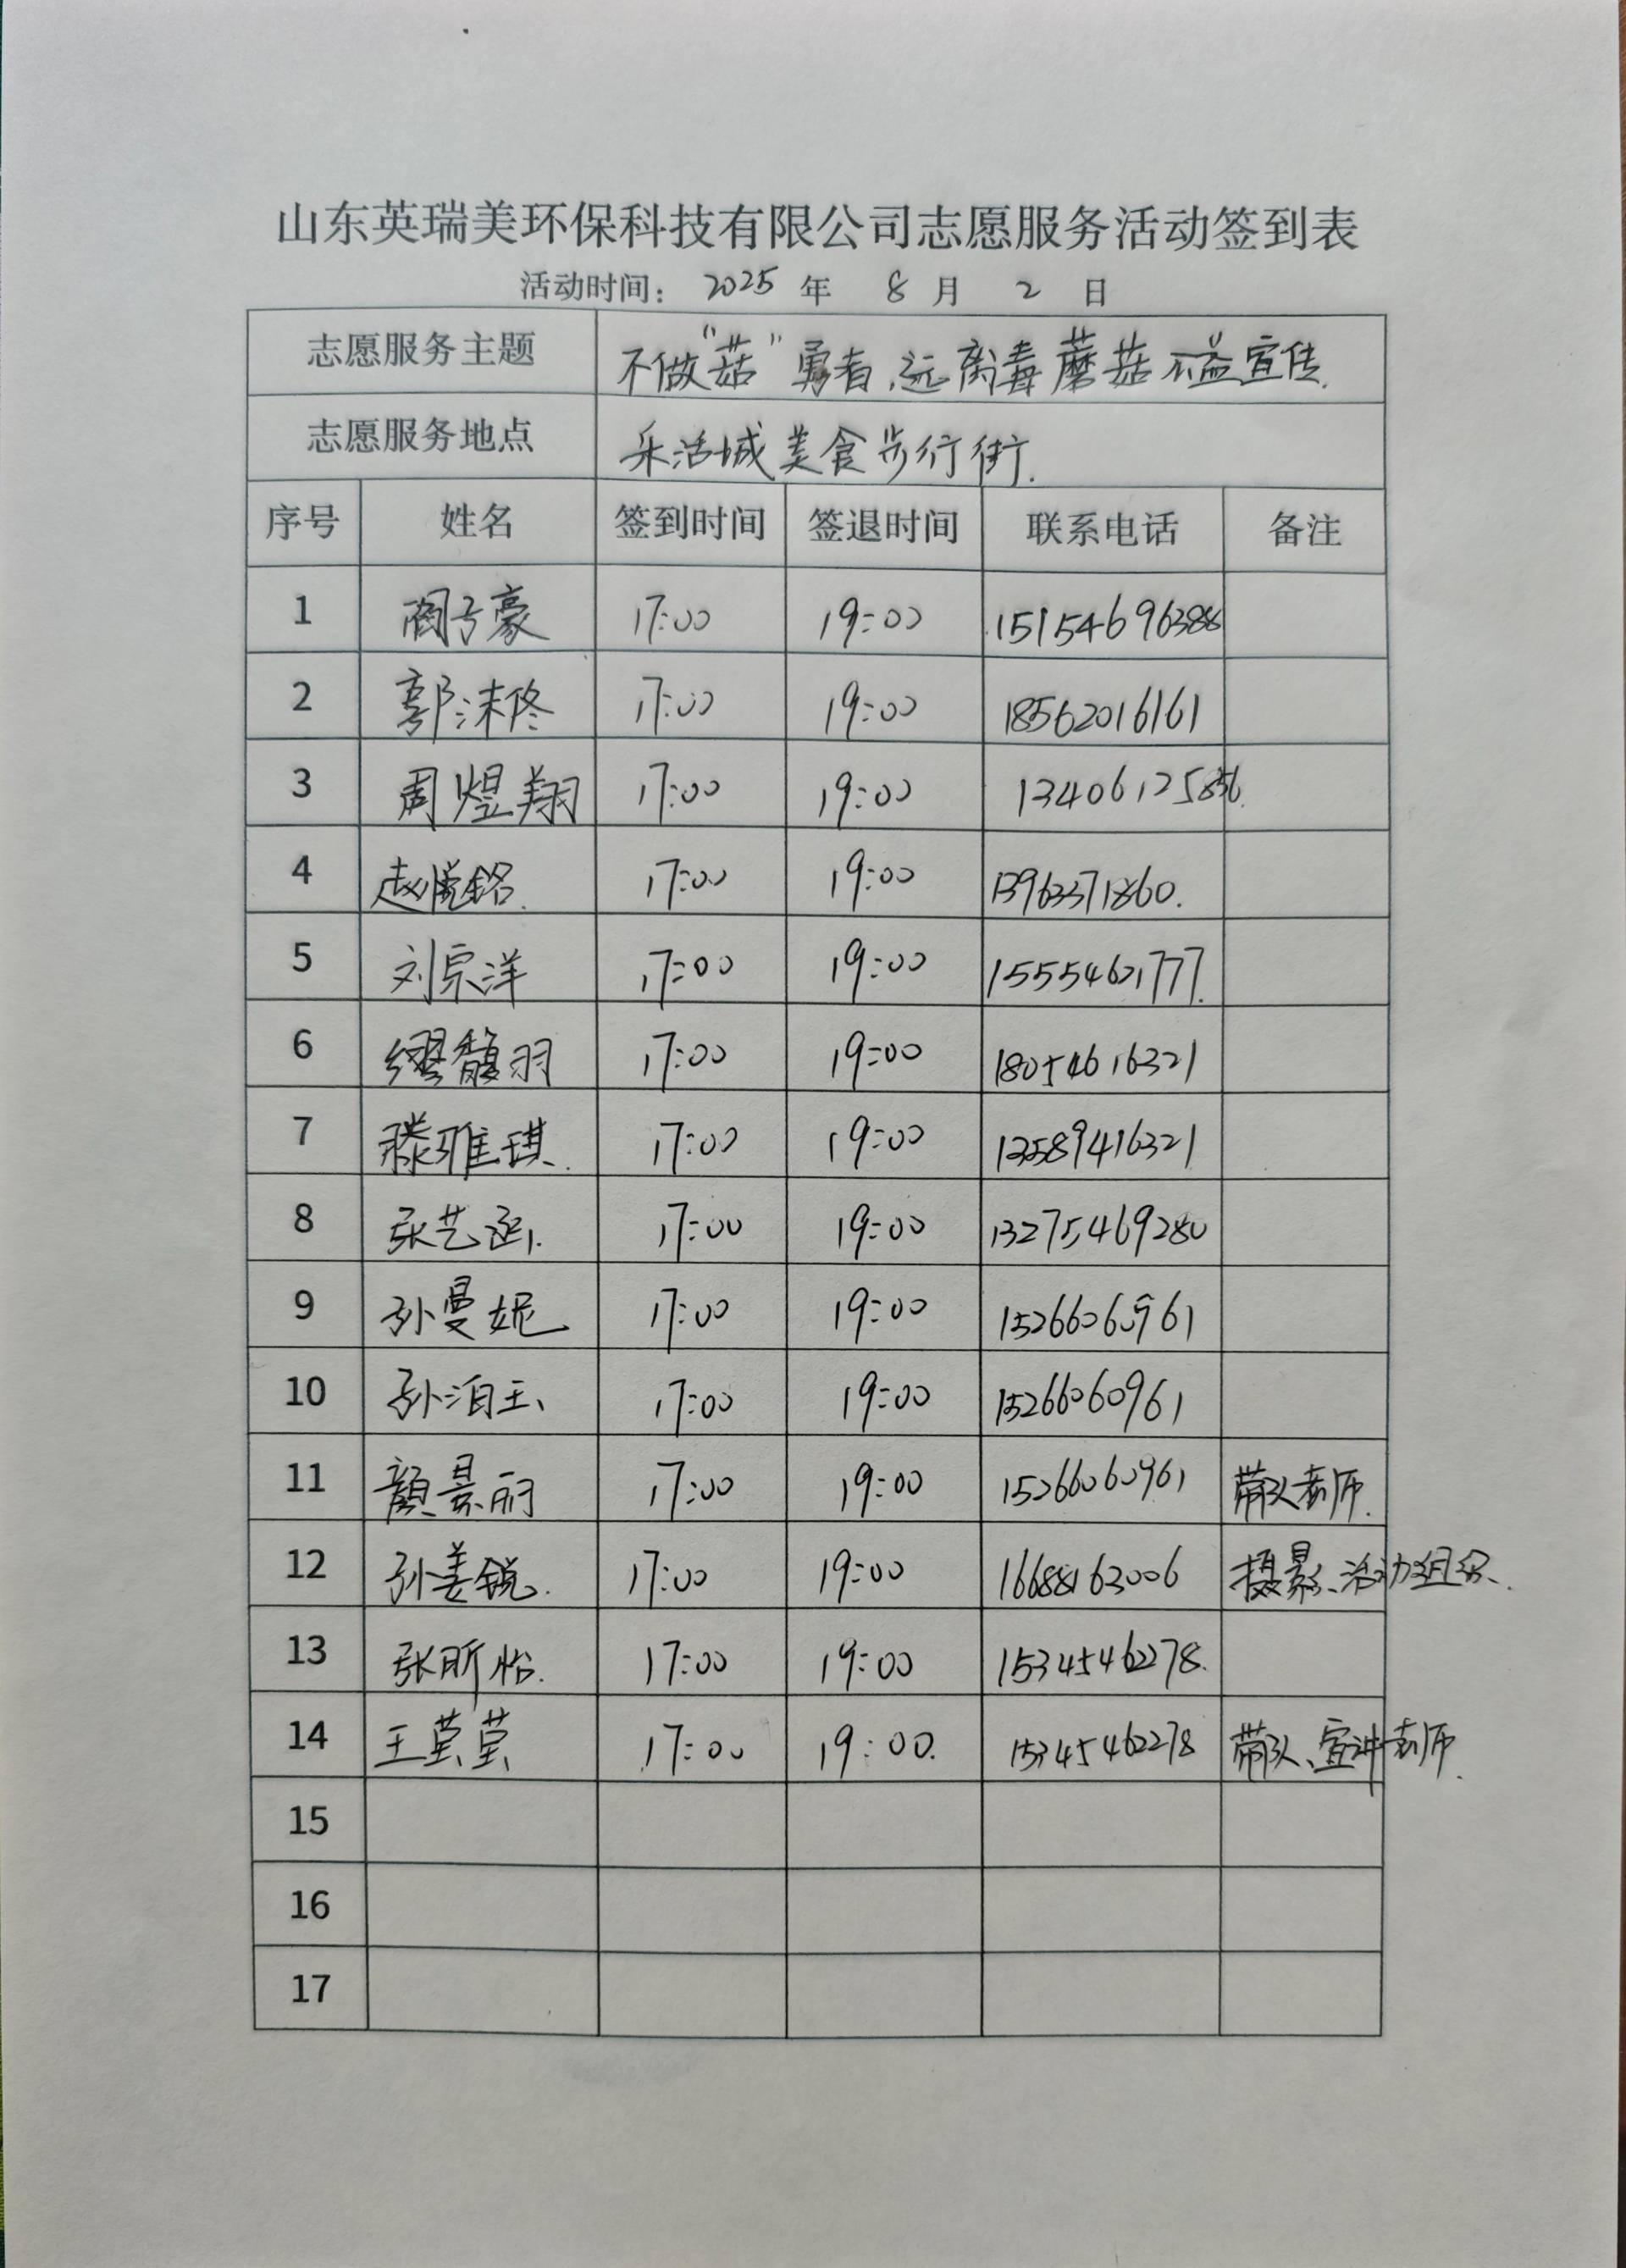 山东英瑞美环保科技有限公司志愿服务活动签到表
活动时间： 2025 年 8 月 2 日
志愿服务主题 不做“菇”勇者,远离毒蘑菇公益宣传.
志愿服务地点 乐活城美食步行街.
序号 姓名 签到时间 签退时间 联系电话 备注
1 阎子豪 17:00 19:00 15154696388
2 郭沫佟 17:00 19:00 18562016161
3 周煜翔 17:00 19:00 13406125856.
4 赵悦铭. 17:00 19:00 13963371860.
5 刘宗洋 17:00 19:00 15554621777.
6 缪馥羽 17:00 19:00 18054616321
7 滕雅琪. 17:00 19:00 13589416321
8 张艺函. 17:00 19:00 13275469280
9 孙曼妮 17:00 19:00 15266060961
10 孙泊玉 17:00 19:00 15266060961
11 颜景丽 17:00 19:00 15266060961 带队老师.
12 孙姜锐. 17:00 19:00 16688163006 摄影、活动组织.
13 张昕怡. 17:00 19:00 15345462278.
14 王莹莹 17:00 19:00. 15345462278 带队、宣讲老师.
15
16
17